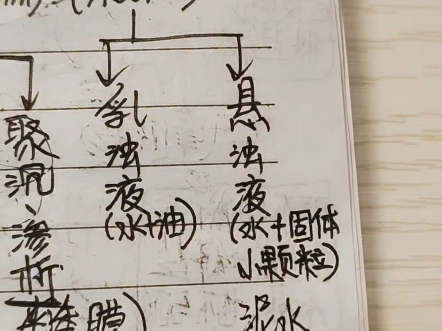 聚沉
渗析
乳浊液
(水+油)
悬浊液
(水+固体
小颗粒)
膜)
泥水